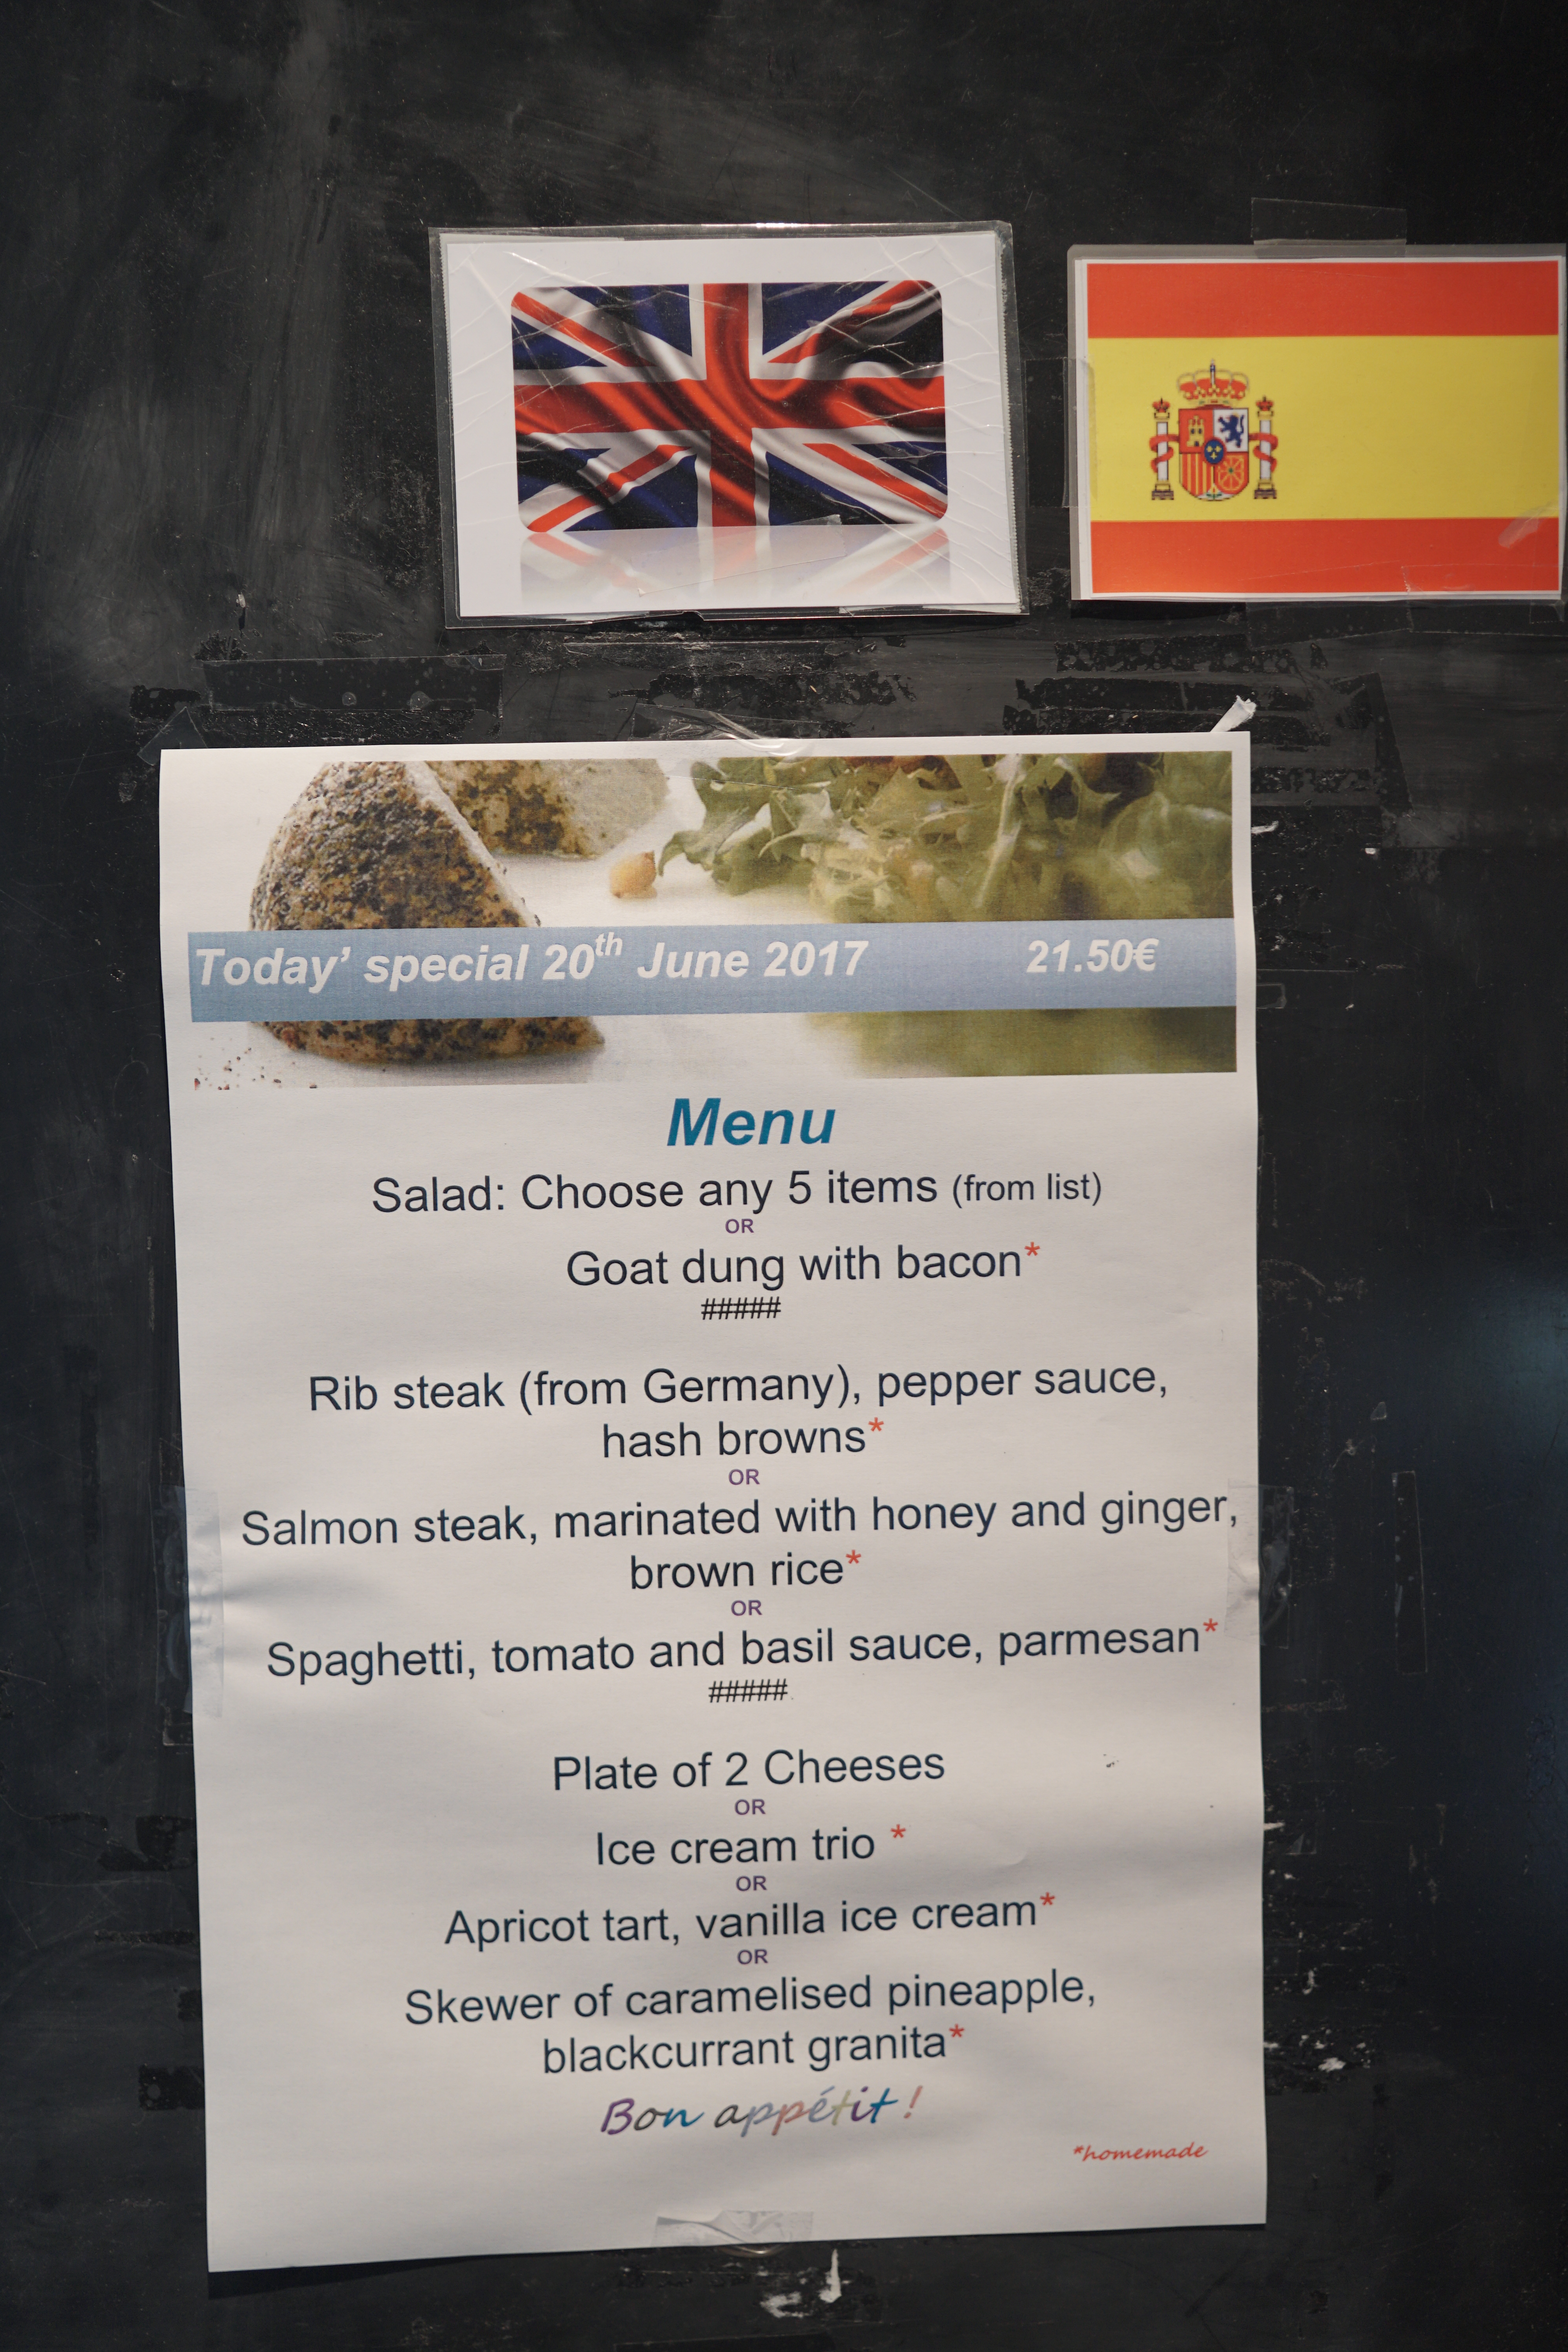 Today' special 20th June 2017 21.50€
Menu
Salad: Choose any 5 items (from list)
OR
Goat dung with bacon*
#####
Rib steak (from Germany), pepper sauce,
hash browns*
OR
Salmon steak, marinated with honey and ginger,
brown rice*
OR
Spaghetti, tomato and basil sauce, parmesan*
#####
Plate of 2 Cheeses
OR
Ice cream trio *
OR
Apricot tart, vanilla ice cream*
OR
Skewer of caramelised pineapple,
blackcurrant granita*
Bon appétit !
*homemade